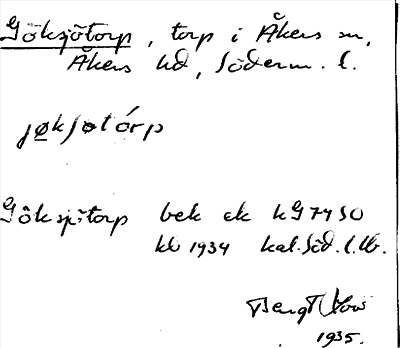 Göksjötorp, torp i Åkers sn,
Åkers hd, Söderm. l.
jøkʃøtórp
Göksjötorp bek ek kG 7450
kb 1934 kal. Söd. l. tb.
Bengt
1935.